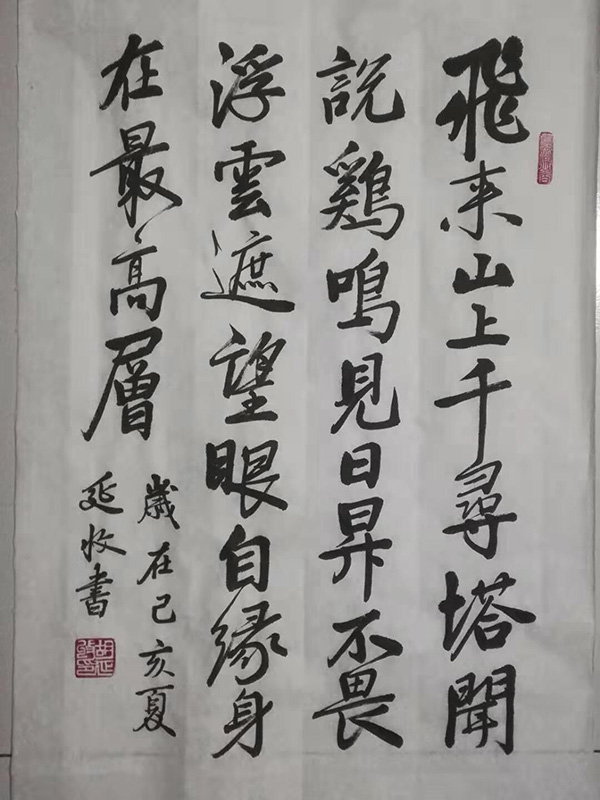 飛来山上千尋塔聞
説鷄鳴見日昇不畏
浮雲遮望眼自緣身
在最高層
歲在己亥夏
延收書